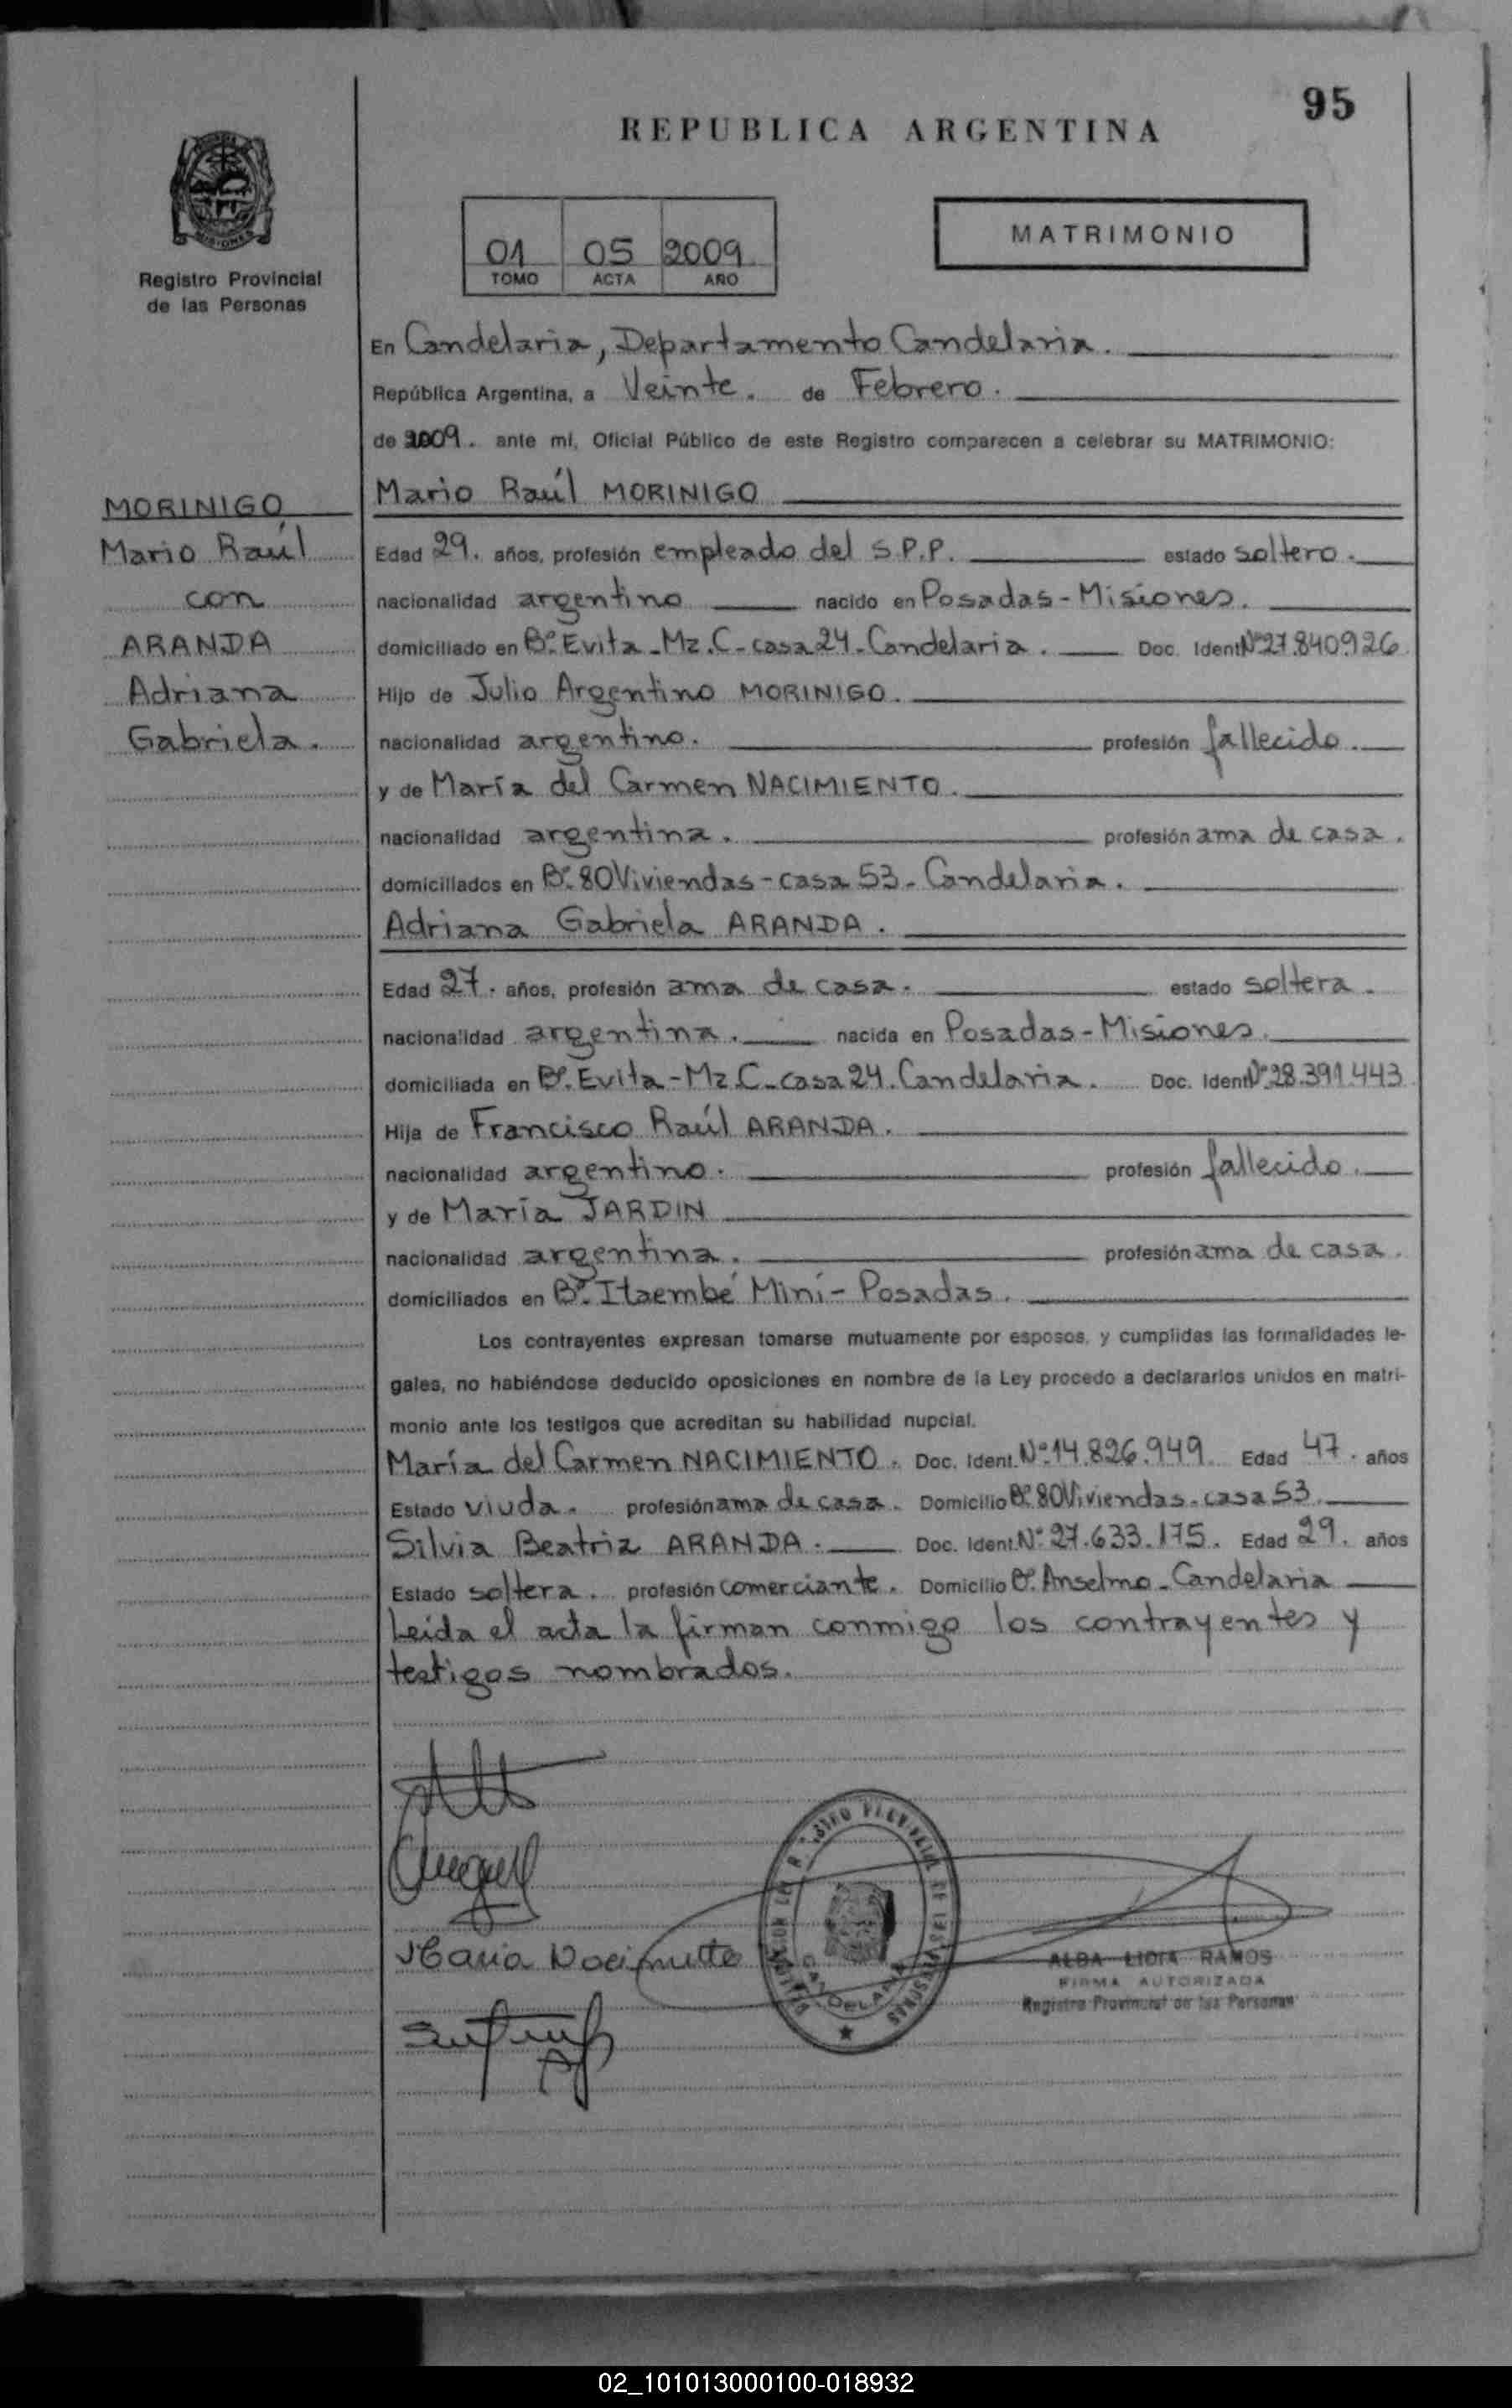 95
REPUBLICA ARGENTINA
MISIONES
Registro Provincial
de las Personas
01 05 2009
TOMO ACTA AÑO
MATRIMONIO
En Candelaria, Departamento Candelaria.
República Argentina, a Veinte. de Febrero.
de 2009. ante mí, Oficial Público de este Registro comparecen a celebrar su MATRIMONIO:
MORINIGO
Mario Raúl
con
ARANDA
Adriana
Gabriela.
Mario Raúl MORINIGO
Edad 29. años, profesión empleado del S.P.P. estado soltero.
nacionalidad argentino nacido en Posadas-Misiones.
domiciliado en Bº. Evita-Mz.C-casa 24-Candelaria. Doc. Ident Nº 27.840.926
Hijo de Julio Argentino MORINIGO.
nacionalidad argentino. profesión fallecido.
y de María del Carmen NACIMIENTO.
nacionalidad argentina. profesión ama de casa.
domiciliados en Bº. 80 Viviendas-casa 53-Candelaria.
Adriana Gabriela ARANDA.
Edad 27. años, profesión ama de casa. estado soltera.
nacionalidad argentina. nacida en Posadas-Misiones.
domiciliada en Bº. Evita-Mz C-casa 24.Candelaria. Doc. Ident Nº 28.391.443
Hija de Francisco Raúl ARANDA.
nacionalidad argentino. profesión fallecido.
y de María JARDIN
nacionalidad argentina. profesión ama de casa.
domiciliados en Bº. Itaembé Miní-Posadas.
Los contrayentes expresan tomarse mutuamente por esposos, y cumplidas las formalidades le-
gales, no habiéndose deducido oposiciones en nombre de la Ley procedo a declararlos unidos en matri-
monio ante los testigos que acreditan su habilidad nupcial.
María del Carmen NACIMIENTO. Doc. Ident. Nº 14.826.949 Edad 47. años
Estado viuda. profesión ama de casa. Domicilio Bº 80 Viviendas-casa 53.
Silvia Beatriz ARANDA. Doc. Ident. Nº 27.633.175. Edad 29. años
Estado soltera. profesión comerciante. Domicilio Bº. Anselmo-Candelaria
Leída el acta la firman conmigo los contrayentes y
testigos nombrados.
Maria
CANDELARIA
ALBA LIDIA RAMOS
FIRMA AUTORIZADA
Registro Provincial de las Personas
02_101013000100-018932